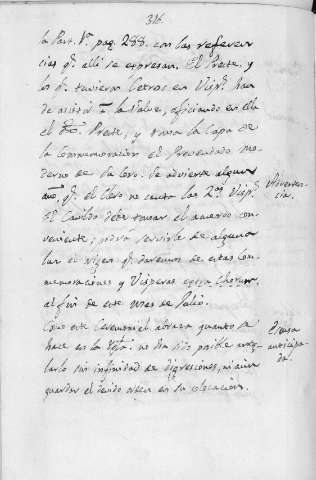 316.
la Part. 1ª pag. 288. con las referen-
cias qᵉ alli se expresan. El Preste, y
los qᵉ tuvieron Cetros en Vispˢ han
de asistir à la Salve, oficiando en ella
el Preste, y toma la Capa de
la Commemoracion el Prevendado mo-
derno de la Se advierte algun
año, qᵉ el Clero no canta las 2ᵃˢ Vispˢ
El Cavildo debe tomar el acuerdo con-
veniente; podrá servirle de alguna
luz el origen qᵉ daremos de estas Com-
memoraciones y Visperas extra Chorum,
al fin de este mes de Julio.
Como este Ceremonial abraza quanto se
hace en la Yglª no ha sido posible arre-
glarlo sin infinidad de digresiones, ni aun
guardar el devido orden en su colocacion.
Adverten-
cia.
Escusa
anticipa-
da.